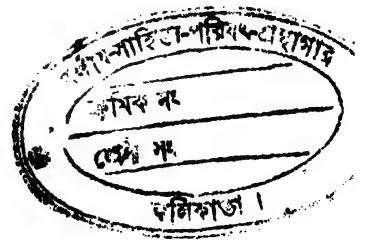 সাহিত্য-পরিষৎ-গ্রন্থাগার
ক্রমিক নং
শ্রেণী নং
কলিকাতা।